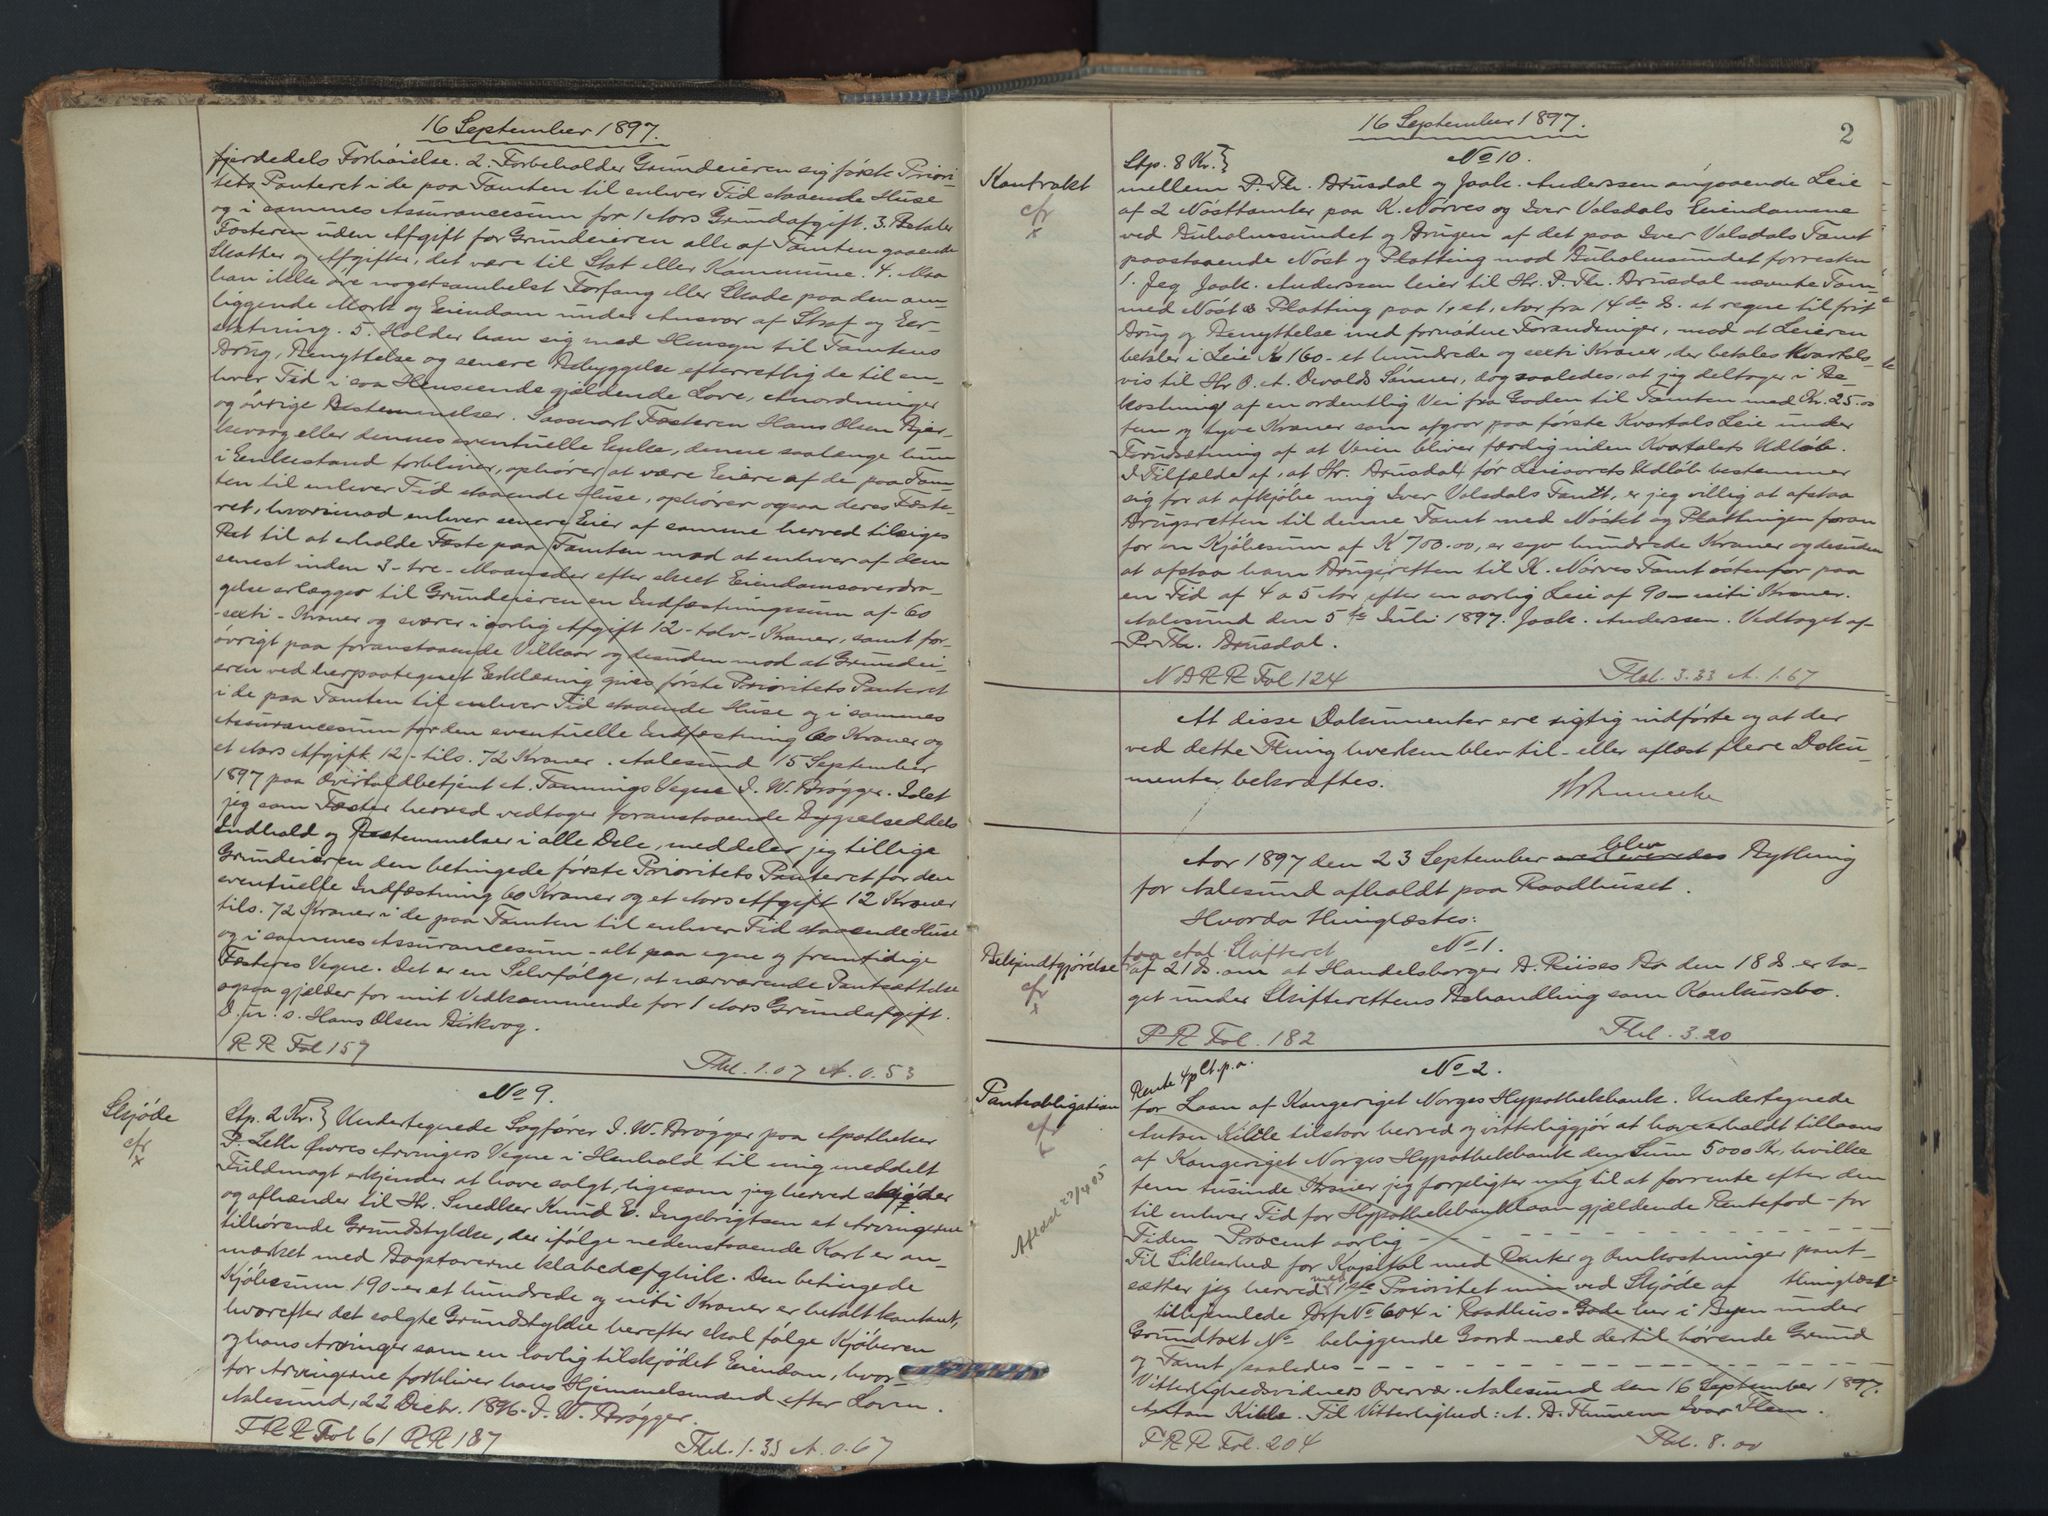 16 September 1897.
fjerdedels Forhöielse. 2. Forbeholder Grundeieren sig förste Priori-
tets Panteret i de paa Tomten til enhver Tid staaende Huse
og i sammes Assurancesum for 1 Aars Grundafgift. 3. Betaler
Fæsteren uden Afgift for Grundeieren alle af Tomten gaaende
Skatter og Afgifter, det være til Stat eller Kommune. 4. Maa
han ikke öve nogetsomhelst Forfang eller Skade paa den om-
liggende Mark og Eiendom under Ansvar af Straf og Er-
statning. 5. Holder han sig med Hensyn til Tomtens
Brug, Benyttelse og senere Bebyggelse efterrettlig de til en-
hver Tid i saa Henseende gjældende Love, Anordninger
og övrige Bestemmelser. Saasnart Fæsteren Hans Olsen Bjer-
kevaag eller dennes eventuelle Enke, denne saalænge hun
i Enkestand forbliver, ophörer at være Eiere af de paa Tom-
ten til enhver Tid staaende Huse, ophörer ogsaa deres Fæste-
ret, hvorimod enhver senere Eier af samme herved tilsiges
Ret til at erholde Fæste paa Tomten mod at enhver af dem
senest inden 3 - tre - Maaneder efter skeet Eiendomsoverdra-
gelse erlægger til Grundeieren en Indfæstningssum af 60
- sexti - Kroner og svarer i aarlig Afgift 12 - tolv - Kroner, samt for-
övrigt paa foranstaaende Vilkaar og desuden mod at Grundei-
eren ved herpaategnet Erklæring gives förste Prioritets Panteret
i de paa Tomten til enhver Tid staaende Huse og i sammes
Assurancesum for den eventuelle Indfæstning 60 Kroner og
et Aars Afgift 12 - tils. 72 Kroner. Aalesund 15 September
1897 paa Overtoldbetjent A. Tonnings Vegne I. W. Brögger. Idet
jeg som Fæster herved vedtager foranstaaende Bygselseddels
Indhold og Bestemmelser i alle Dele, meddeler jeg tillige
Grundeieren den betingede förste Prioritets Panteret for den
eventuelle Indfæstning 60 Kroner og et Aars Afgift 12 Kroner
tils. 72 Kroner i de paa Tomten til enhver Tid staaende Huse
og i sammes Assurancesum - alt paa egne og fremtidige
Fæsteres Vegne. Det er en Selvfölge, at nærværende Pantsættelse
ogsaa gjælder for mit Vedkommende for 1 Aars Grundafgift.
D. u. s. Hans Olsen Birkvog.
R R Fol 157
Thl. 1.07 A. 0.53
No 9.
Skjöde
cfr
x
Stp. 2 Kr. } Undertegnede Sagförer I. W. Brögger paa Apotheker
P. Leth Övres Arvingers Vegne i Henhold til mig meddelt
Fuldmagt erkjender at have solgt, ligesom jeg herved skjöder
og afhænder til Hr. Snedker Knud E. Ingebrigtsen et Arvingerne
tilhörende Grundstykke, der ifölge nedenstaaende Kart er an-
mærket med Bogstaverne klabcdefghik. Den betingede
Kjöbesum 190 - er et hundrede og niti Kroner er betalt kontant,
hvorefter det solgte Grundstykke herefter skal fölge Kjöberen
og hans Arvinger som en lovlig tilskjödet Eiendom, hvor
for Arvingerne forbliver hans Hjemmelsmænd efter Loven.
Aalesund, 22 Decbr. 1896. I. W. Brögger.
Fol 61 R R 187
Thl. 1.33 A. 0.67
16 September 1897.
2
No 10.
Kontrakt
cfr
x
Stp. 8 Kr. }
mellem P. Th. Brusdal og Joak. Anderssen angaaende Leie
af 2 Nösttomter paa K. Nörves og Iver Valsdals Eiendomme
ved Buholmsundet og Brugen af det paa Iver Valsdals Tomt
paastaaende Nöst og Platting mod Buholmsundet forresten
1. Jeg Joak. Anderssen leier til Hr. P. Th. Brusdal nævnte Tom-
med Nöst & Platting paa 1, et, Aar fra 14de ds. at regne til frit
Brug og Benyttelse med fornödne Forandringer, mod at Leieren
betaler i Leie Kr 160 - et hundrede og sexti Kroner, der betales Kvartals-
vis til Hr. O. A. Devolds Sönner, dog saaledes, at jeg deltager i Be-
kostning af en ordentlig Vei fra Gaden til Tomten med Kr. 25.00
fem og tyve Kroner som afgaar paa förste Kvartals Leie under
Forudsætning af at Veien bliver færdig inden Kvartalets Udlöb.
I Tilfælde af, at Hr. Brusdal för Leieaarets Udlöb bestemmer
sig for at afkjöbe mig Iver Valsdals Tomt, er jeg villig at afstaa
Brugsretten til denne Tomt med Nöstet og Plattingen foran
for en Kjöbesum af K 700.00, er syv hundrede Kroner og desuden
at afstaa ham Brugsretten til K. Nörves Tomt östenfor paa
en Tid af 4 a 5 Aar efter en aarlig Leie af 90 - niti Kroner.
Aalesund den 5te Juli 1897. Joak. Anderssen. Vedtaget af
P. Th. Brusdal.
N A R R Fol 124
Thl. 3.33 A. 1.67
At disse Dokumenter ere rigtig indförte og at der
ved dette Thing hverken blev til- eller aflæst flere Doku-
menter bekræftes.
Aar 1897 den 23 September blev Bything
for Aalesund afholdt paa Raadhuset.
Hvorda thinglæstes:
No 1.
Bekjendtgjörelse
cfr
x
fra Aal. Skifteret
af 21 ds. om at Handelsborger B. Riises Bo den 18 ds. er ta-
get under Skifterettens Behandling som Konkursbo.
P R Fol. 182
Thl. 3.20
No 2.
Pantobligation
cfr
x
Aflæst 27/4 05
Rente 4 pCt. p. a.
for Laan af Kongeriget Norges Hypothekbank. Undertegnede
Anton Kible tilstaar herved og vitterliggjör at have erholdt tillaans
af Kongeriget Norges Hypothekbank den Sum 5000 Kr, hvilke
fem tusinde Kroner jeg forpligter mig til at forrente efter den
til enhver Tid for Hypothekbanklaan gjældende Rentefod - for
Tiden Procent aarlig - - - - - - - - - -
Til Sikkerhed for Kapital med Renter og Omkostninger pant-
sætter jeg herved med 1ste Prioritet min ved Skjöde af thinglæst
tilhjemlede Brf. No 604 i Raadhus-Gade her i Byen under
Grundtaxt No beliggende Gaard med dertil hörende Grund
og Tomt, saaledes - - - - - - - - - -
Vitterlighedsvidners Overvær. Aalesund den 16 September 1897.
Anton Kible. Til Vitterlighed: A. B. Thunem Ivar Flem.
Fol. 204
Thl. 8.00